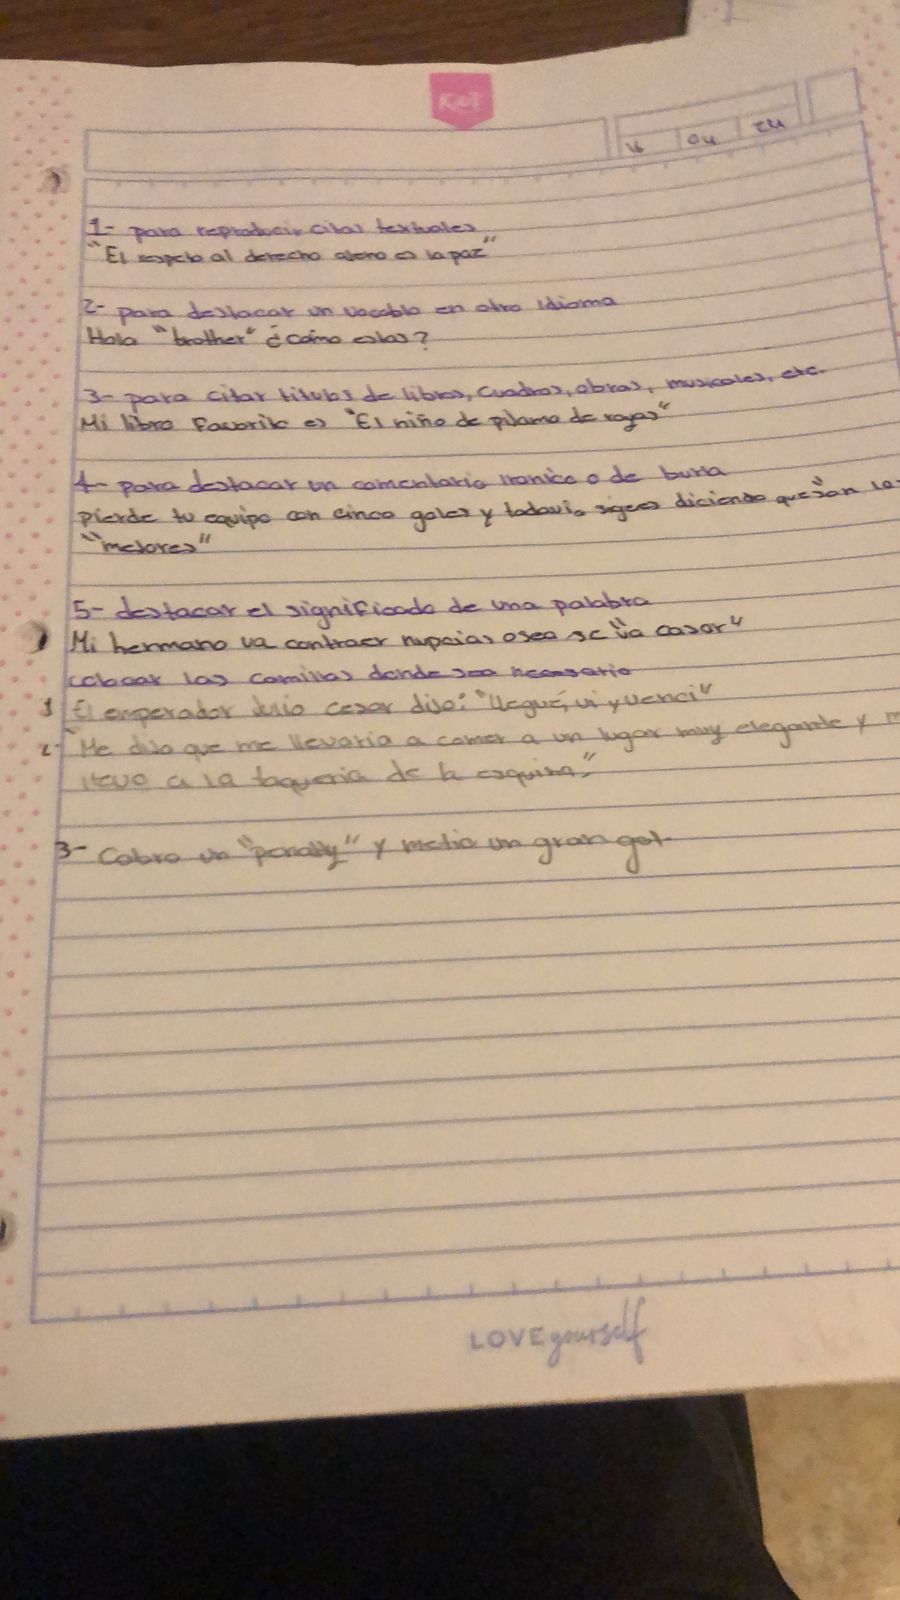 Kiut
16 04 24
1- para reproducir citas textuales
"El respeto al derecho ajeno es la paz"
2- para destacar un vocablo en otro idioma
Hola "brother" ¿cómo estas?
3- para citar titulos de libros, cuadros, obras, musicales, etc.
Mi libro Favorito es "El niño de pijama de rayas"
4- para destacar un comentario ironico o de burla
pierde tu equipo con cinco goles y todavia sigues diciendo que son lo
"mejores"
5- destacar el significado de una palabra
Mi hermano va contraer nupcias osea se "va casar"
colocar las comillas donde sea necesario
1 El emperador Julio cesar dijo: "llegué, vi y venci"
2- "Me dijo que me llevaria a comer a un lugar muy elegante y m
llevo a la taqueria de la esquina"
3- Cobro un "penalty" y metio un gran gol
LOVE yourself